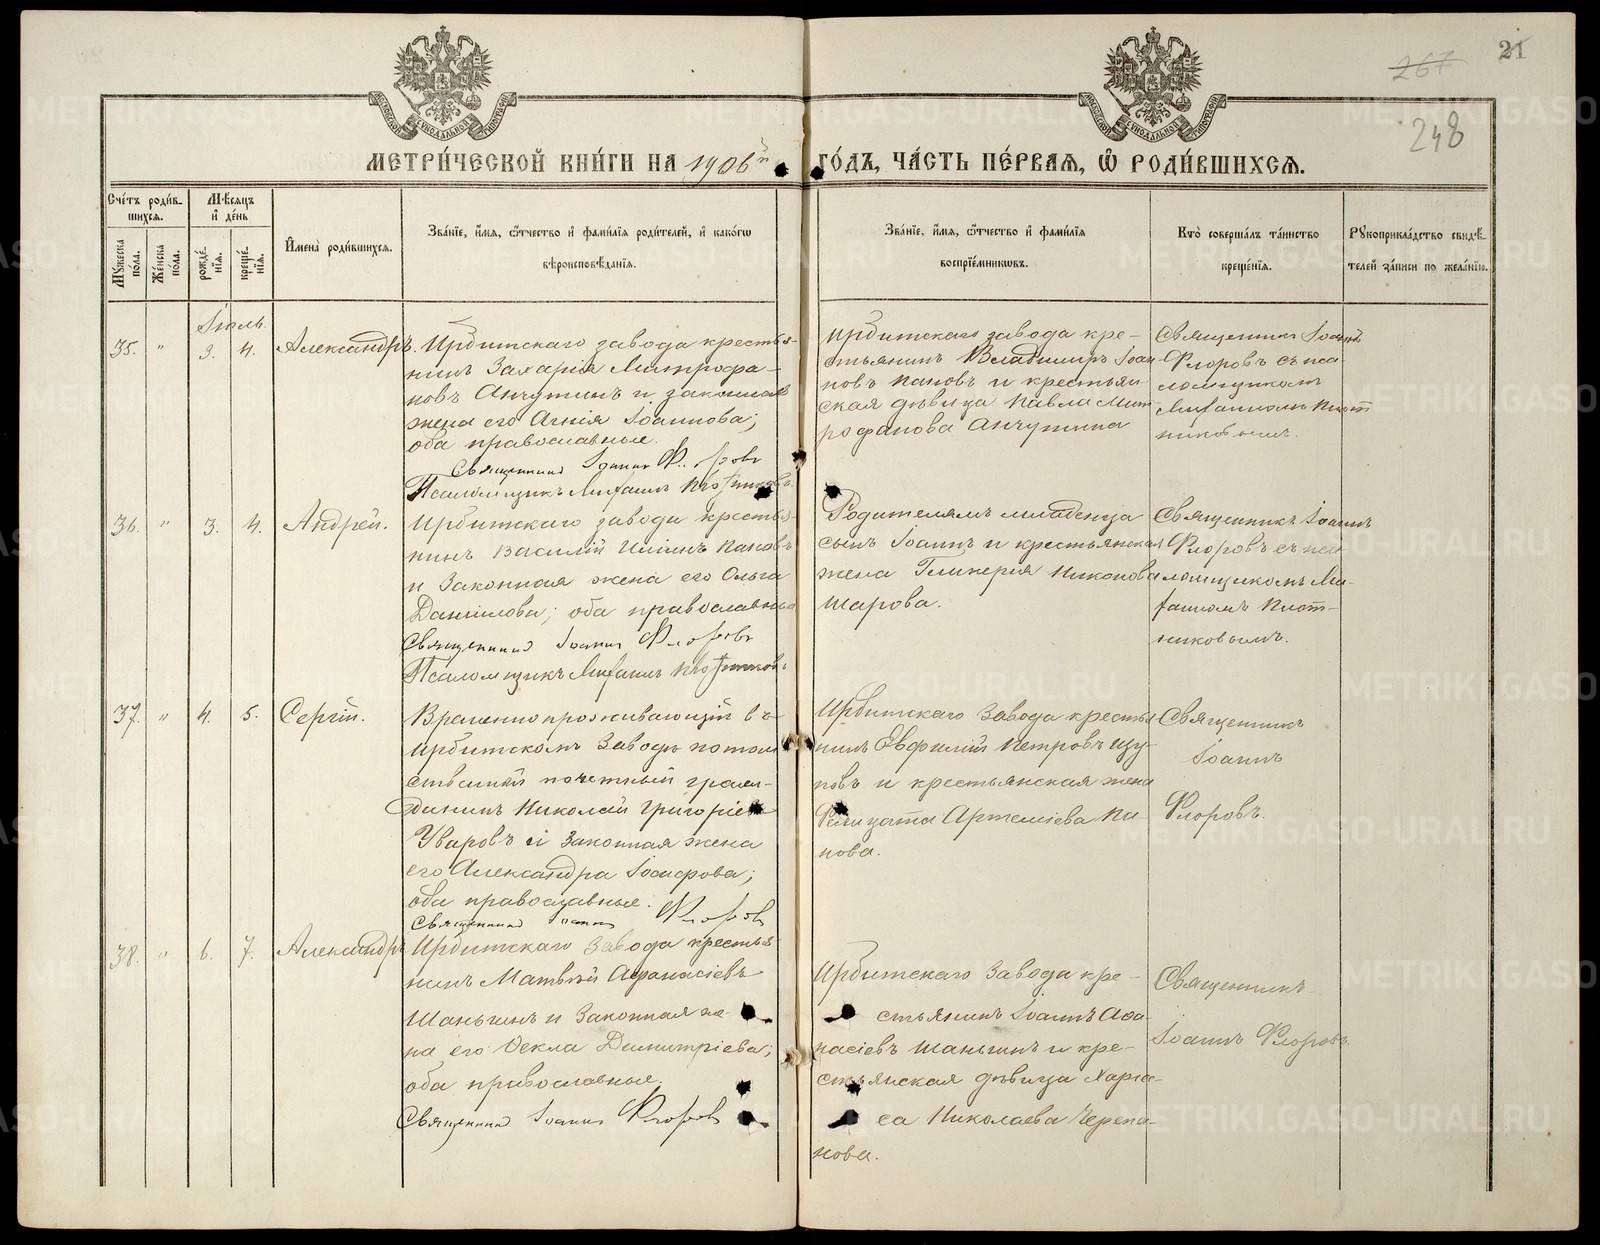 21
267
248
МЕТРИ́ЧЕСКОЙ КНИ́ГИ НА 1906й ГО́ДЪ, ЧА́СТЬ ПЕ́РВАЯ, Ѡ҆ РОДИ́ВШИХСѦ.
Сче́тъ роди́в-
шихся.
Мѣ́сяцъ
и҆ де́нь
Мꙋ́жеска по́ла.
Же́нска по́ла.
рожде́нїя.
креще́нїя.
И҆мена̀ роди́вшихся.
Зва́нїе, и҆́мя, ѻ҆́тчество и҆ фами́лїя роди́телей, и҆ како́гѡ
вѣроисповѣ́данїя.
Зва́нїе, и҆́мя, ѻ҆́тчество и҆ фами́лїя
воспрїе́мникѡвъ.
Кто̀ соверша́лъ та́инство
креще́нїя.
Рꙋкоприкла́дство свидѣ́-
телей за́писи по жела́нїю.
Іюль.
35. " 3. 4. Александръ.
Ирбитскаго завода крестья-
нинъ Захарія Митрофа-
новъ Анчутинъ и законная
жена его Агнія Іоаннова;
оба православные.
Священникъ Іоаннъ Флоровъ
Псаломщикъ Михаилъ Плотниковъ
Ирбитскаго завода кре-
стьянинъ Владимиръ Іоан
новъ Пановъ и крестьян-
ская дѣвица Павла Мит
рофанова Анчутина
Священникъ Іоаннъ
Флоровъ съ пса-
ломщикомъ
Михаиломъ Плот
никовымъ.
36. " 3. 4. Андрей.
Ирбитскаго завода крестья-
нинъ Василій Ильинъ Пановъ
и Законная жена его Ольга
Даниилова; оба православные
Священникъ Іоаннъ Флоровъ
Псаломщикъ Михаилъ Плотниковъ
Родителямъ младенца
сынъ Іоаннъ и крестьянская
жена Гликерія Никонова
Шарова.
Священникъ Іоаннъ
Флоровъ съ пса-
ломщикомъ Ми-
хаиломъ Плот-
никовымъ.
37. " 4. 5. Сергій.
Временно проживающій въ
Ирбитскомъ Заводѣ потом
ственный почетный граж-
данинъ Николай Григорьевъ
Уваровъ и Законная жена
его Александра Іосифова;
оба православные.
Священникъ Іоаннъ Флоровъ
Ирбитскаго Завода крестья
нинъ Евфилій Петровъ Цу-
повъ и крестьянская жена
Фелицата Артеміева Па-
нова.
Священникъ
Іоаннъ
Флоровъ.
38. " 6. 7. Александръ
Ирбитскаго Завода крестья-
нинъ Матвѣй Афанасіевъ
Шаньгинъ и Законная же-
на его Ѳекла Димитріева;
оба православные.
Священникъ Іоаннъ Флоровъ
Ирбитскаго Завода кре-
стьянинъ Іоаннъ Афа-
насіевъ Шаньгинъ и кре-
стьянская дѣвица Харис-
са Николаева Черепа-
нова.
Священникъ
Іоаннъ Флоровъ
METRIKI.GASO-URAL.RU